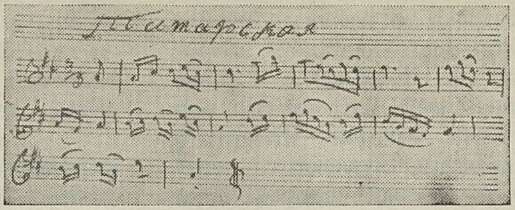 Татарская